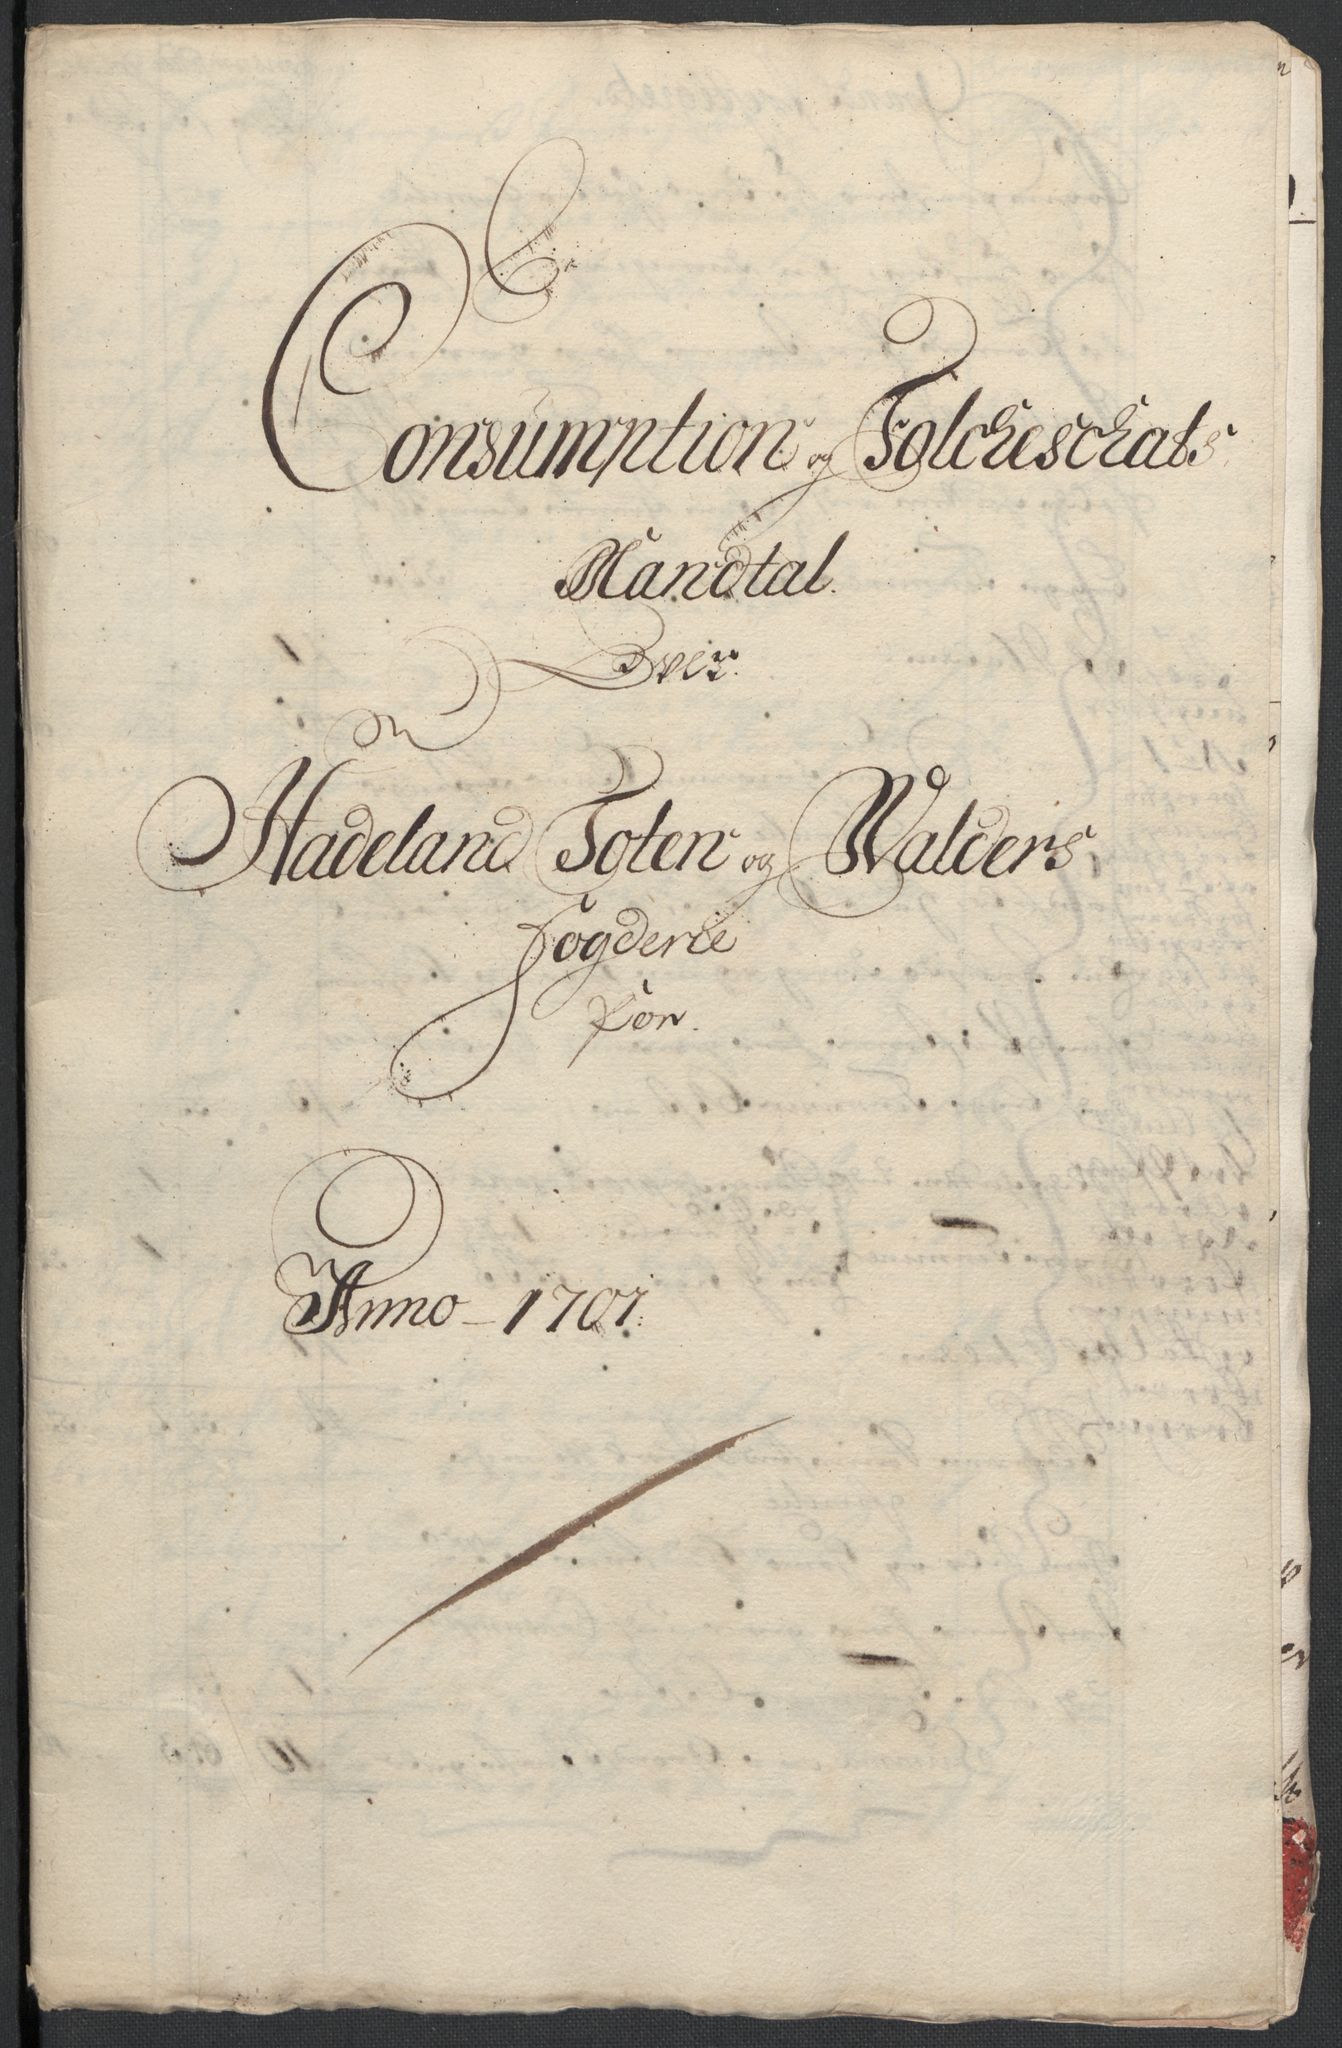 Consumption og Folckeschats
Mandtal.
Over
Hadeland Toten og Walders
fogderie
For
Anno - 1707.